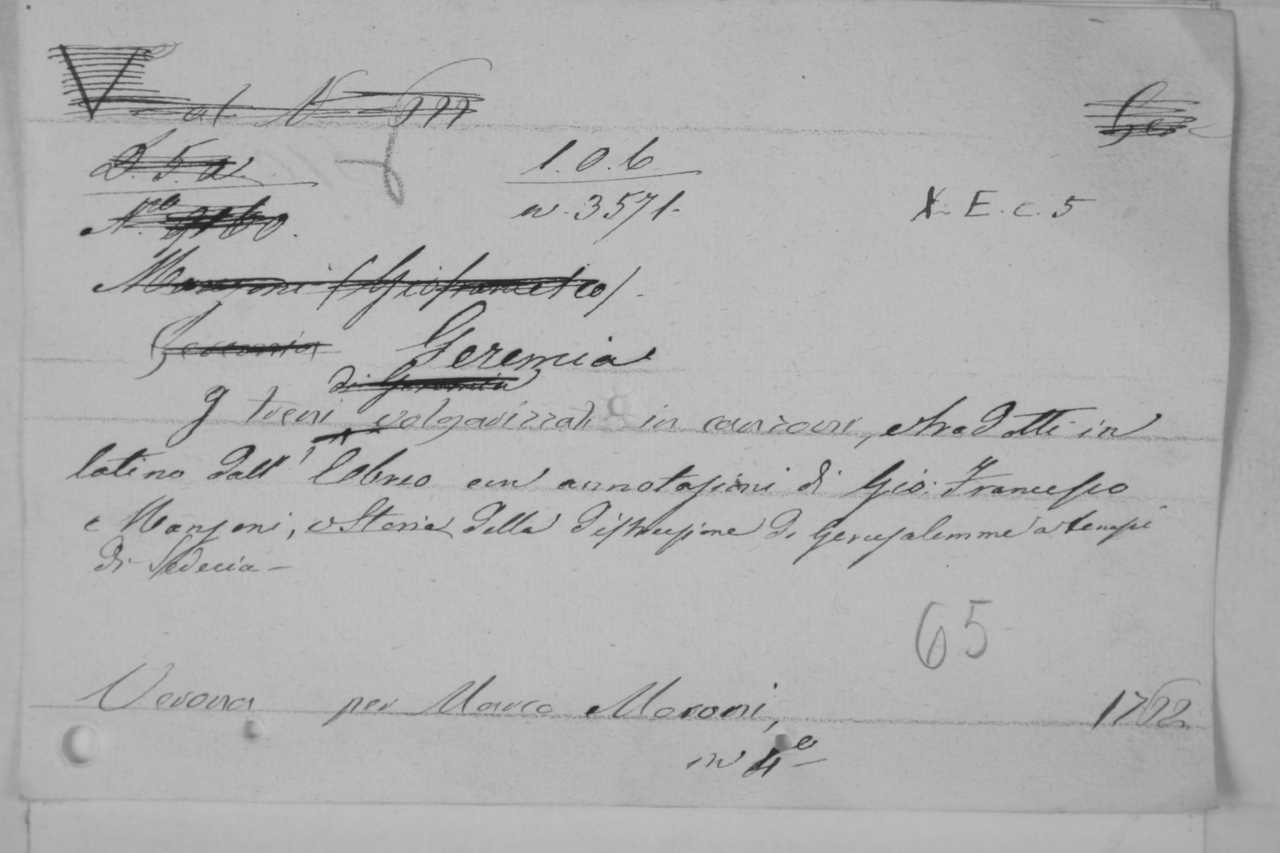 al N 
D. 5. a. 1. O. 6
N.ro 9160. n. 3571. X. E. c. 5
Manzoni (Giofrancesco).
Geremia Geremia
di Geremia
I treni volgarizzati in canzoni, e tradotti in
latino dall' Ebreo con annotazioni di Gio: Francesco
Manzoni, e Storia della distruzione di Gerusalemme a tempi
di Sedecia —
65
Verona per Marco Moroni,
in 4º